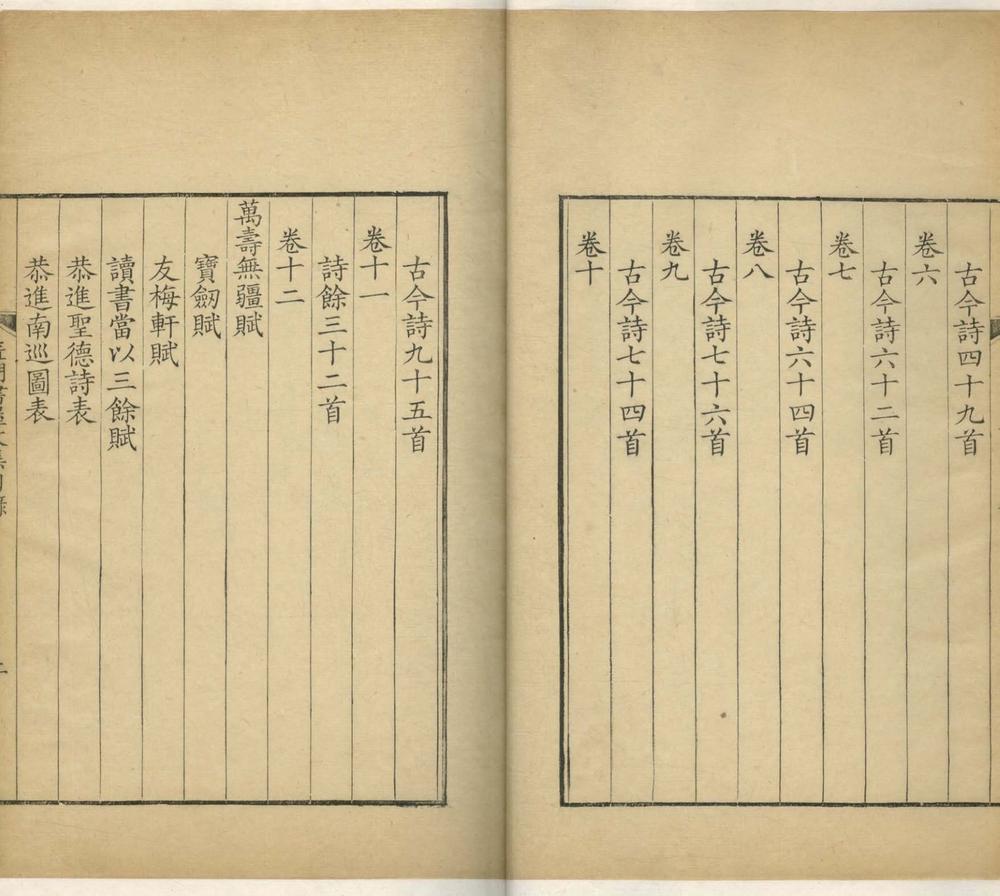 古今詩四十九首
卷六
古今詩六十二首
卷七
古今詩六十四首
卷八
古今詩七十六首
卷九
古今詩七十四首
卷十
古今詩九十五首
卷十一
詩餘三十二首
卷十二
萬壽無疆賦
寶劒賦
友梅軒賦
讀書當以三餘賦
恭進聖德詩表
恭進南巡圖表